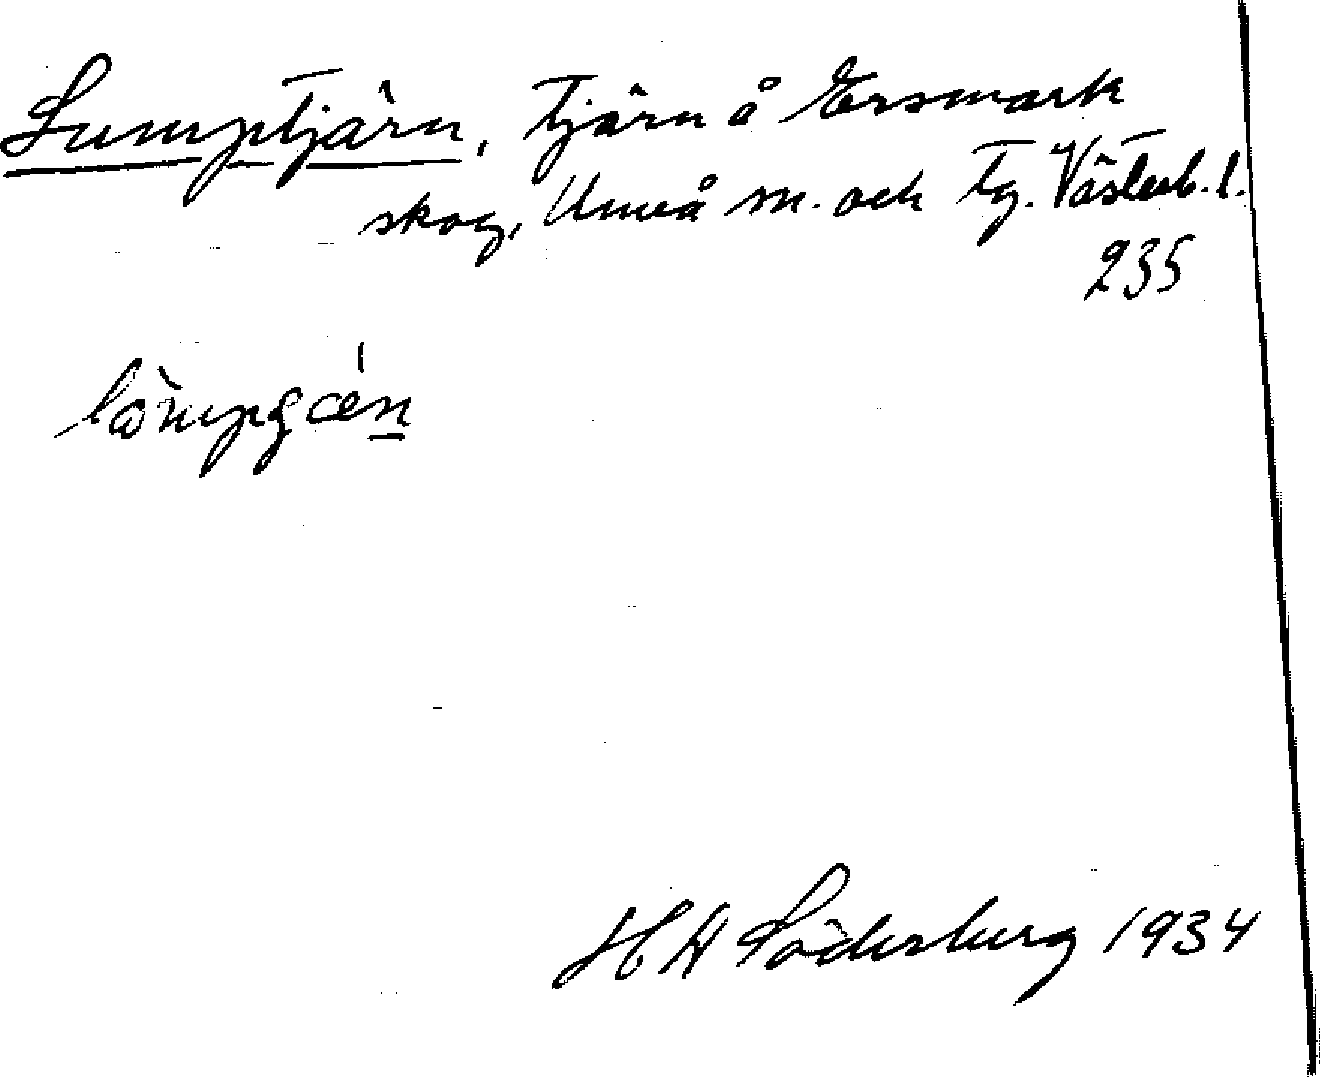 Lumptjärn, tjärn å Ersmark
skog, Umeå sn. och tg. Västerb. l.
235
H A Söderberg 1934